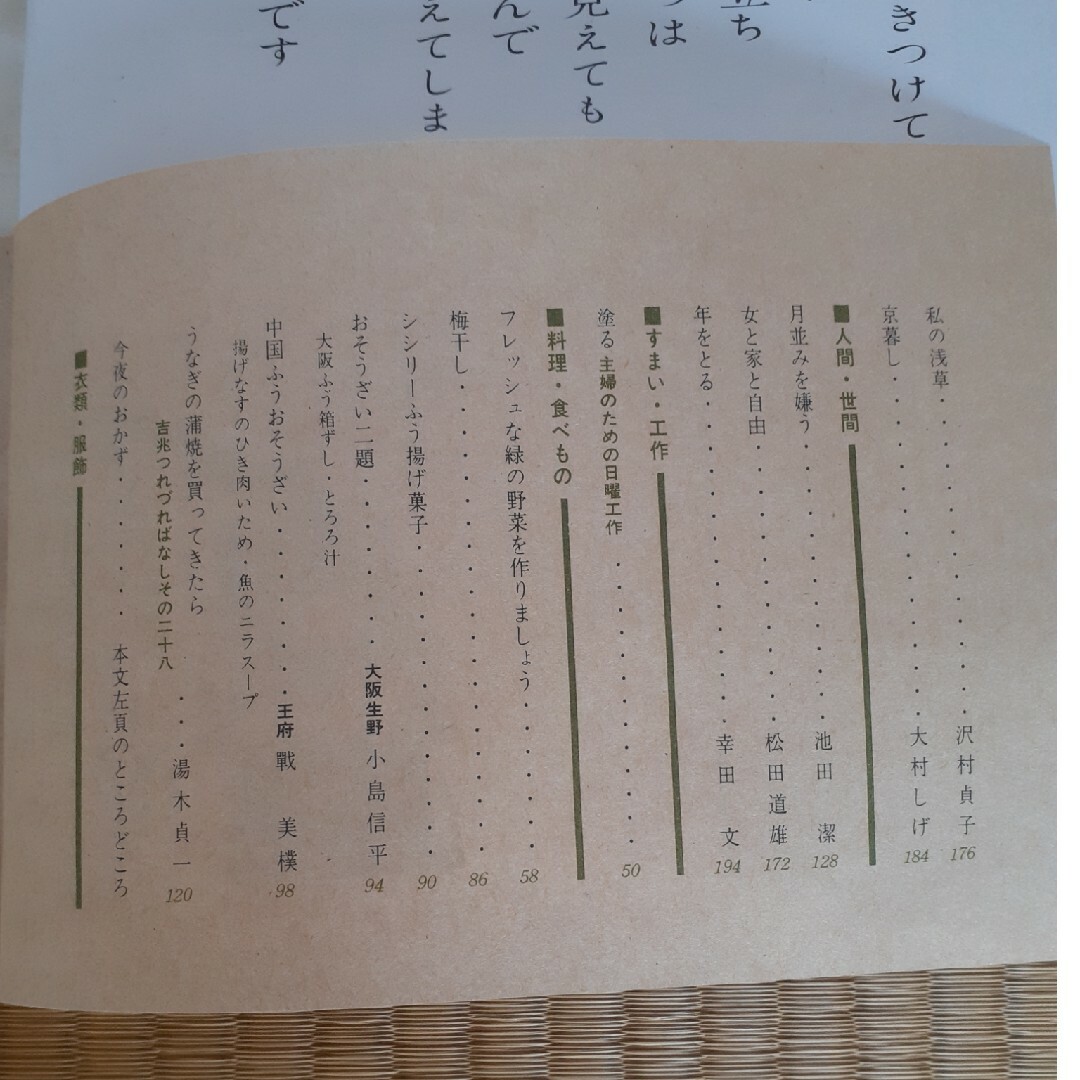 きつけて
は
見えても
んで
えてしま
です
私の浅草・・・・・・・・・・・沢村貞子 176
京暮し・・・・・・・・・・・・大村しげ 184
■人間・世間
月並みを嫌う・・・・・・・・・池田 潔 128
女と家と自由・・・・・・・・・松田道雄 172
年をとる・・・・・・・・・・・幸田 文 194
■すまい・工作
塗る 主婦のための日曜工作・・・・・・・・ 50
■料理・食べもの
フレッシュな緑の野菜を作りましょう・・・・・ 58
梅干し・・・・・・・・・・・・・・・ 86
シシリーふう揚げ菓子・・・・・・・・・・ 90
おそうざい二題・・・・・・・大阪生野 小島信平 94
大阪ふう箱ずし・とろろ汁
中国ふうおそうざい・・・・・王府 戰 美樸 98
揚げなすのひき肉いため・魚のニラスープ
うなぎの蒲焼を買ってきたら
吉兆つれづればなしその二十八・・・湯木貞一 120
今夜のおかず・・・・・・本文左頁のところどころ
■衣類・服飾